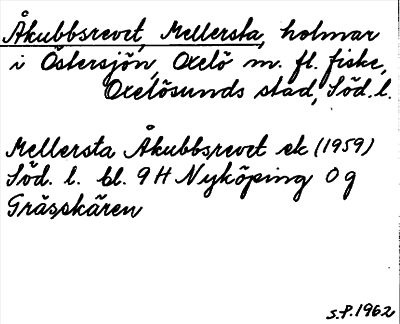 Åkubbsrevet, Mellersta, holmar
i Östersjön, Oxelö m. fl. fiske,
Oxelösunds stad, Söd. l.
Mellersta Åkubbsrevet ek (1959)
Söd. l. bl. 9 H Nyköping 0 g
Grässkären
S.P. 1962